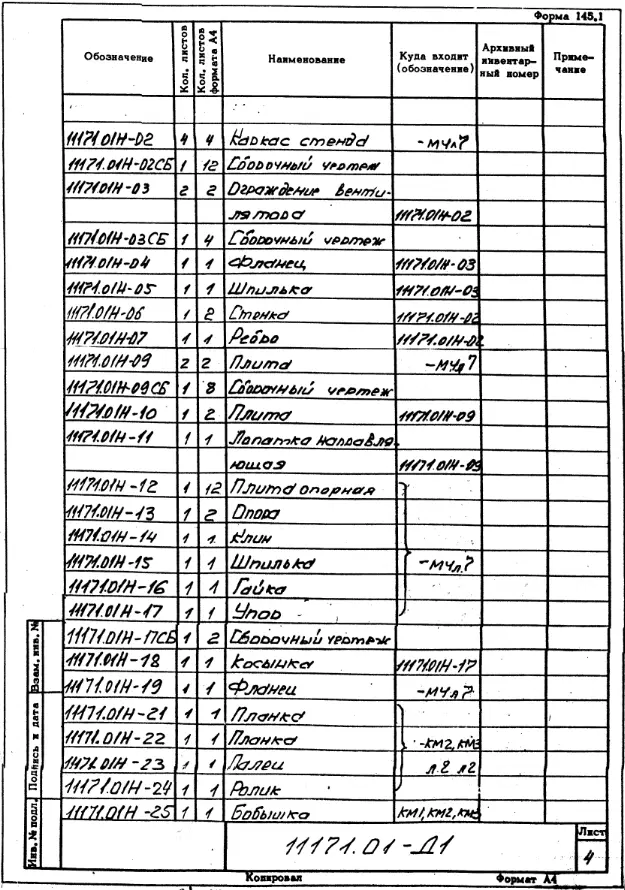 Форма 145.1
Обозначение Кол. листов Кол. листов формата А4 Наименование Куда входит (обозначение) Архивный инвентарный номер Примечание
11171.01Н-02 4 4 Каркас стенда -МЧл7
11171.01Н-02СБ 1 12 Сборочный чертеж
11171.01Н-03 2 2 Ограждение венти-
лятора 11171.01Н-02
11171.01Н-03СБ 1 4 Сборочный чертеж
11171.01Н-04 1 1 Фланец 11171.01Н-03
11171.01Н-05 1 1 Шпилька 11171.01Н-03
11171.01Н-06 1 2 Стенка 11171.01Н-02
11171.01Н-07 1 1 Ребро 11171.01Н-02
11171.01Н-09 2 2 Плита -МЧл7
11171.01Н-09СБ 1 8 Сборочный чертеж
11171.01Н-10 1 2 Плита 11171.01Н-09
11171.01Н-11 1 1 Лопатка направля-
ющая 11171.01Н-09
11171.01Н-12 1 12 Плита опорная
11171.01Н-13 1 2 Опора
11171.01Н-14 1 1 Клин
11171.01Н-15 1 1 Шпилька -МЧл.7
11171.01Н-16 1 1 Гайка
11171.01Н-17 1 1 Упор
11171.01Н-17СБ 1 2 Сборочный чертеж
11171.01Н-18 1 1 Косынка 11171.01Н-17
11171.01Н-19 1 1 Фланец -МЧл7
11171.01Н-21 1 1 Планка
11171.01Н-22 1 1 Планка -КМ2, КМ3
11171.01Н-23 1 1 Палец л.2 л2
11171.01Н-24 1 1 Ролик
11171.01Н-25 1 1 Бобышка КМ1, КМ2, КМ3
Инв. № подл. Подпись и дата Взам. инв. №
11171.01-Д1
Лист
4
Копировал Формат А4